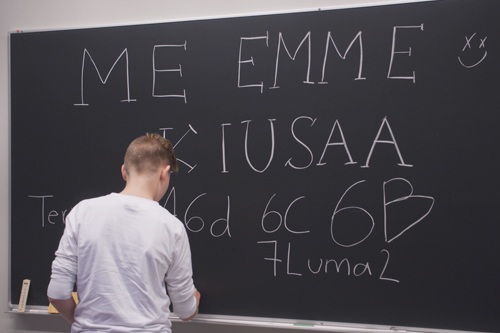 ME EMME
KIUSAA
6d 6C 6B
7Luma2